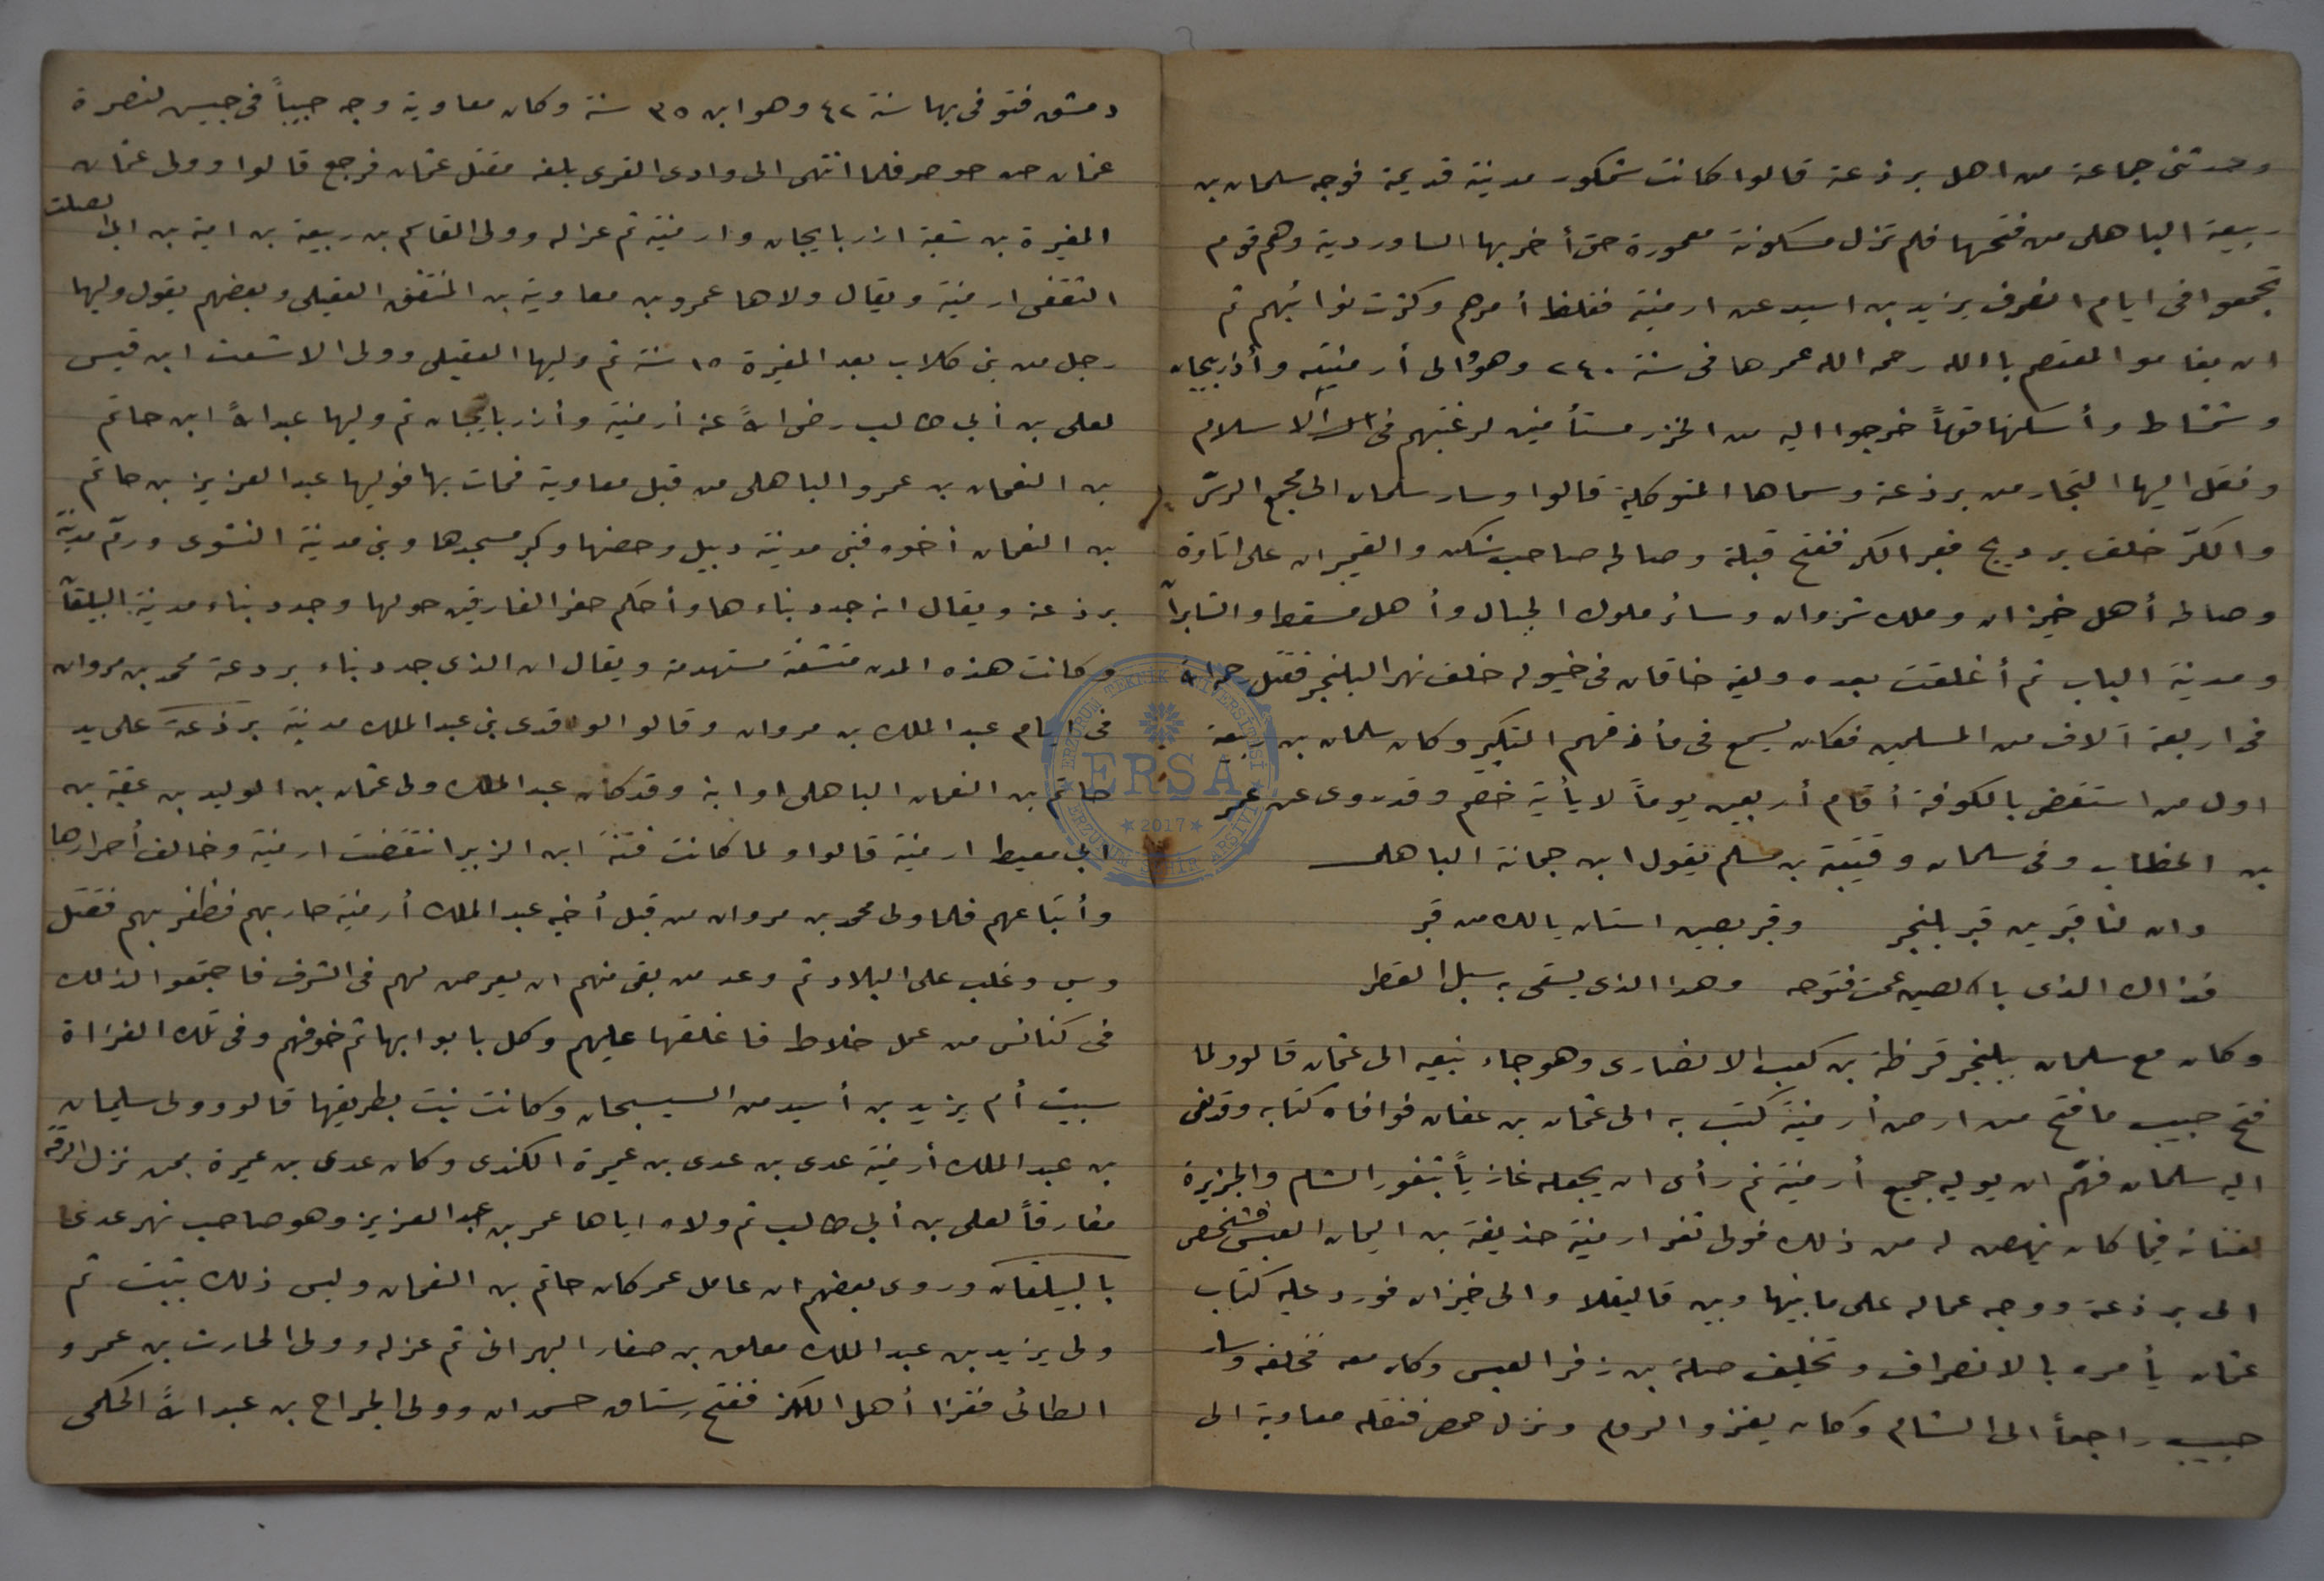 وحدثنى جماعة من اهل برذعة قالوا كانت شمكور مدينة قديمة فوجه سلمان بن
ربيعة الباهلى من فتحها فلم تزل مسكونة معمورة حتى أخربها الساوردية وهم قوم
تجمعوا فى ايام انصرف يزيد بن اسيد عن ارمنية فغلظ أمرهم وكثرت نوائبهم ثم
ان بغا مو المعتصم باالله رحمه الله عمرها فى سنة ٢٤٠ وهو والى أرمنية وأذربيجان
وشمشاط وأسكنها قوماً خرجوا اليه من الخزر مستأمنين لرغبتهم فى الاسلام
ونقل اليها التجار من برذعة وسماها المتوكلية قالوا وسار سلمان الى مجمع الرسّ
والكرّ خلف برديج فعبر الكر ففتح قبلة وصالحه صاحب شكن والقميبران على اتاوة
وصالحه أهل خيزان وملك شروان وسائر ملوك الجبال وأهل مسقط والشابران
ومدينة الباب ثم أغلقت بعده ولقيه خاقان فى خيوله خلف نهر البلنجر فقتل رحمه الله
فى اربعة آلاف من المسلمين فكان يسمع فى مأذقهم التكبير وكان سلمان بن ربيعة
اول من استقضى بالكوفة أقام أربعين يوماً لا يأتيه خصم وقد روى عن عمر
بن الخطاب وفى سلمان وقتيبة بن مسلم يقول ابن جمانة الباهلى
وان لنا قبرين قبر بلنجر وقبر بصين استان يالك من قبر
فذاك الذى بالصين عمت فتوحه وهذا الذى يسقى به سبل القطر
وكان مع سلمان ببلنجر قرظة بن كعب الانصارى وهو جاء بنعيه الى عثمان قالوو لما
فتح حبيب ما فتح من ارض أرمنية كتب به الى عثمان بن عفان فوافاه كتابه وقد نعى
اليه سلمان فهمّ ان يوليه جميع أرمنية ثم رأى ان يجعله غازياً بثغور الشام والجزيرة
لغنائه فيما كان ينهض له من ذلك فولى ثغر ارمنية حذيفة بن اليمان العبسى فشخص
الى برذعة ووجه عماله على ما بينها وبين قاليقلا والى خيزان فورد عليه كتاب
عثمان يأمره بالانصراف وتخليف صلة بن زفر العبسى وكان معه فخلفه وسار
حبيب راجعاً الى الشام وكان يغزو الروم ونزل حمص فنقله معاوية الى
دمشق فتوفى بها سنة ٤٢ وهو ابن ٣٥ سنة وكان معاوية وجه حبيباً فى جيش لنصرة
عثمان حين حوصر فلما انتهى الى وادى القرى بلغه مقتل عثمان فرجع قالوا وولى عثمان
المغيرة بن شعبة اذربايجان وارمنية ثم عزله وولى القاسم بن ربيعة بن امية بن ابى الصلت
الثقفى ارمنية ويقال ولاها عمرو بن معاوية بن المنتفق العقيلى وبعضهم يقول وليها
رجل من بنى كلاب بعد المغيرة ١٥ سنة ثم وليها العقيلى وولى الاشعث ابن قيس
لعلى بن أبي طالب رضى الله عنه أرمنية وأذربايجان ثم وليها عبد الله ابن حاتم
بن النعمان بن عمرو الباهلى من قبل معاوية فمات بها فوليها عبد العزيز بن حاتم
بن النعمان أخوه فبنى مدينة دبيل وحصنها وكبر مسجدها وبنى مدينة النشوى ورمّ مدينة
برذعة ويقال انه جدد بناءها وأحكم حفر الفارقين حولها وجدد بناء مدينة البيلقان
وكانت هذه المدن متشعثة مستهدمة ويقال ان الذى جدد بناء بردعة محمد بن مروان
فى ايام عبد الملك بن مروان وقالوا الواقدى بنى عبد الملك مدينة برذعة على يد
حاتم بن النعمان الباهلى او ابنه وقد كان عبد الملك ولى عثمان بن الوليد بن عقبة بن
ابي معيط ارمنية قالوا ولما كانت فتنة ابن الزبير انتقضت ارمنية وخالف أحرارها
وأتباعهم فلما ولى محمد بن مروان من قبل أخيه عبد الملك أرمنية حاربهم فظفر بهم فقتل
وسبى وغلب على البلاد ثم وعد من بقى منهم ان يعرض لهم فى الشرف فاجتمعوا لذلك
فى كنائس من عمل خلاط فاغلقها عليهم ووكل بابوابها ثم خوفهم وفى تلك الغزاة
سبيت أم يزيد بن أسيد من السيسجان وكانت بنت بطريقها قالوو وولى سليمان
بن عبد الملك أرمنية عدى بن عدى بن عميرة الكندى وكان عدى بن عميرة ممن نزل الرقة
مفارقاً لعلى بن أبي طالب ثم ولاه اياها عمر بن عبد العزيز وهو صاحب نهر عدى
بالبيلقان وروى بعضهم ان عامل عمر كان حاتم بن النعمان وليس ذلك بثبت ثم
ولى يزيد بن عبد الملك معلق بن صفار البهرانى ثم عزله وولى الحارث بن عمرو
الطائى فغزا أهل اللكز ففتح رستاق حسمدان وولى الجراح بن عبد الله الحكمى
ERZURUM TEKNİK ÜNİVERSİTESİ
ERŞA
2017
ERZURUM ŞEHİR ARŞİVİ